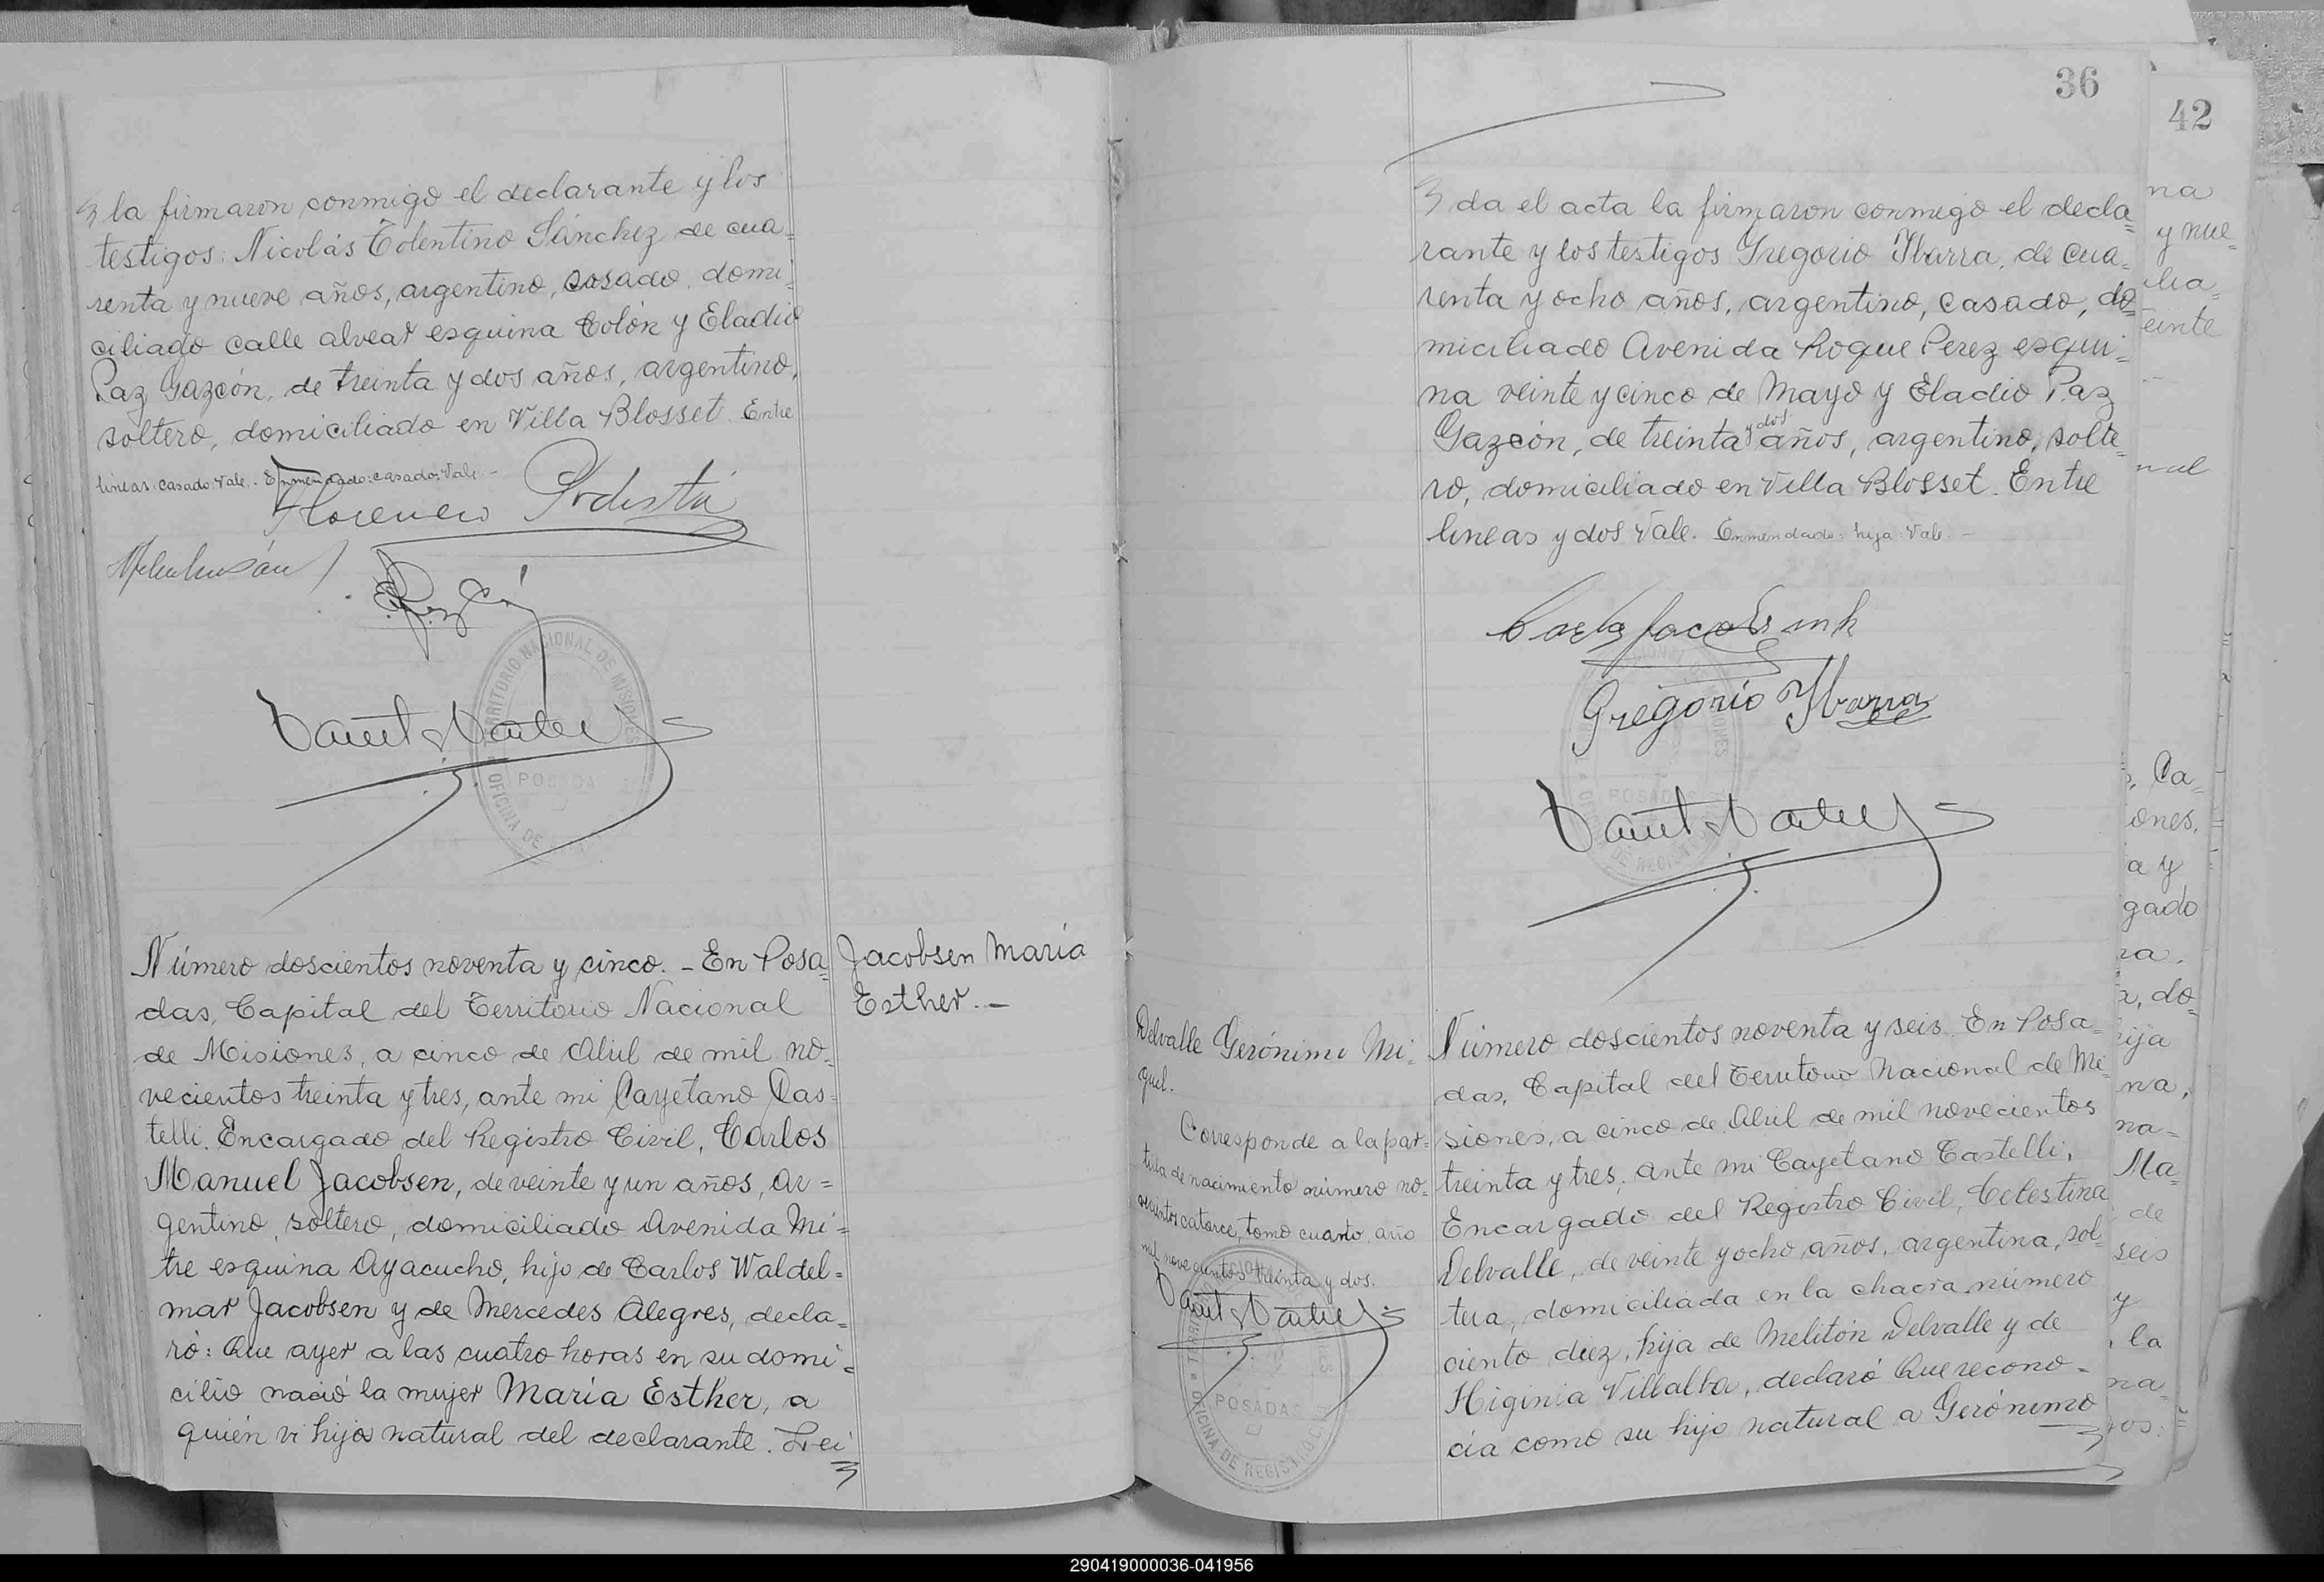 la firmaron conmigo el declarante y los
testigos: Nicolás Tolentino Sánchez de cua=
renta y nueve años, argentino, casado, domi=
ciliado calle alvear esquina Colón y Eladio
Paz Gazcón, de treinta y dos años, argentino,
soltero, domiciliado en Villa Blosset. Entre
lineas: casado: Vale. - Enmendado: casado: Vale -
Florencio Podestá
TERRITORIO NACIONAL DE MISIONES
POSADA
OFICINA DE
Número doscientos noventa y cinco. - En Posa=
das, Capital del Territorio Nacional
de Misiones, a cinco de Abril de mil no=
vecientos treinta y tres, ante mi Cayetano Cas=
telli, Encargado del Registro Civil, Carlos
Manuel Jacobsen, de veinte y un años, ar=
gentino, soltero, domiciliado Avenida Mi=
tre esquina Ayacucho, hijo de Carlos Waldel=
mar Jacobsen y de Mercedes Alegres, decla=
ró: Que ayer a las cuatro horas en su domi=
cilio nació la mujer María Esther, a
quién vi hija natural del declarante. Lei
Jacobsen María
Esther. -
36
da el acta la firmaron conmigo el decla=
rante y los testigos Gregorio Ibarra, de cua=
renta y ocho años, argentino, casado, do=
miciliado Avenida Roque Perez esqui=
na veinte y cinco de Mayo y Eladio Paz
Gazcón, de treinta y dos años, argentino, solte=
ro, domiciliado en Villa Blosset. Entre
lineas y dos Vale. Enmendado: hija: Vale. -
Gregorio Ibarra
POSADAS
DE REGISTRO
Delvalle Gerónimo Mi=
guel.
Corresponde a la par=
tida de nacimiento número no=
vecientos catorce, tomo cuarto, año
mil novecientos treinta y dos.
POSADAS
OFICINA DE REGISTRO CIVIL
Número doscientos noventa y seis. En Posa=
das, Capital del Territorio Nacional de Mi=
siones, a cinco de Abril de mil novecientos
treinta y tres, ante mi Cayetano Castelli,
Encargado del Registro Civil, Celestina
Delvalle, de veinte y ocho años, argentina, sol=
tera, domiciliada en la chacra número
ciento diez, hija de Melitón Delvalle y de
Higinia Villalba, declaró Que recono=
cia como su hijo natural a Gerónimo
42
na
y nue=
einte
Ca=
ones,
a y
gado
ra,
do=
ija
na,
na=
Ma=
de
seis
y
la
na=
os:
290419000036-041956